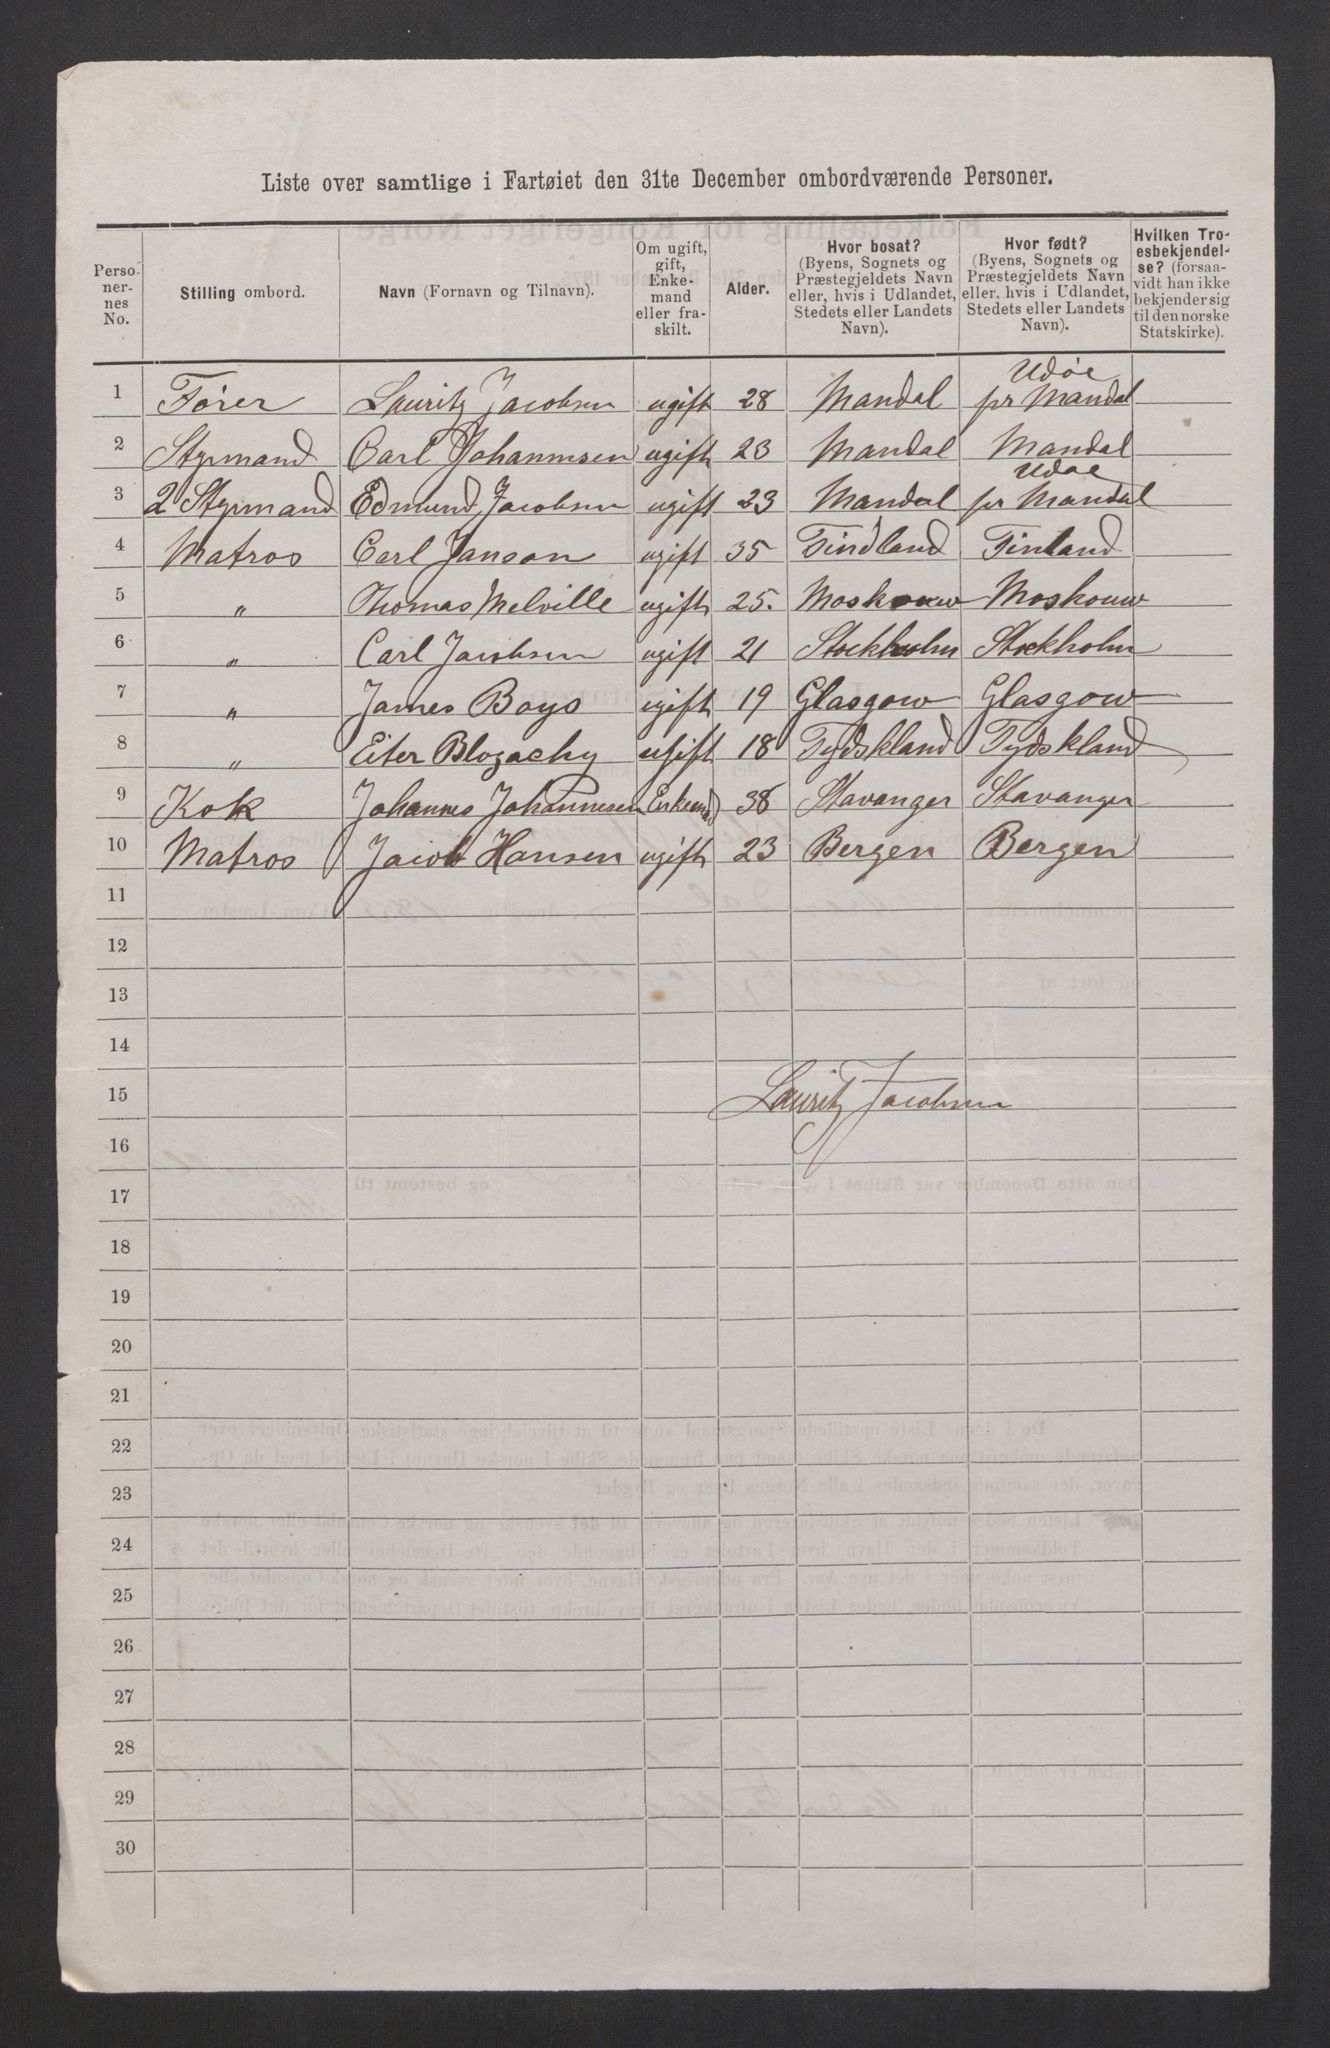 Liste over samtlige i Fartøiet den 31te December ombordværende Personer.
Perso-
ner-
nes
No.
Stilling ombord.
Navn (Fornavn og Tilnavn).
Om ugift,
gift,
Enke-
mand
eller fra-
skilt.
Alder.
Hvor bosat?
(Byens, Sognets og
Præstegjeldets Navn
eller, hvis i Udlandet,
Stedets eller Landets
Navn).
Hvor født?
(Byens, Sognets og
Præstegjeldets Navn
eller, hvis i Udlandet,
Stedets eller Landets
Navn).
Hvilken Tro-
esbekjendel-
se? (forsaa-
vidt han ikke
bekjender sig
til den norske
Statskirke).
Udøe
1 Fører Lauritz Jacobsen ugift 28 Mandal pr Mandal
2 Styrmand Carl Johannesen ugift 23 Mandal Mandal
Udøe
3 2 Styrmand Edmund Jacobsen ugift 23 Mandal pr Mandal
4 Matros Carl Janson ugift 35 Findland Finland
5 " Thomas Melville ugift 25. Moskouw Moskouw
6 " Carl Jacobsen ugift 21 Stockholm Stockholm
7 " James Boys ugift 19 Glasgow Glasgow
8 " Eiter Blogachy ugift 18 Tydskland Tydskland
9 Kok Johannes Johannesen Enkemd 38 Stavanger Stavanger
10 Matros Jacob Hansen ugift 23 Bergen Bergen
11
12
13
14
15 Lauritz Jacobsen
16
17
18
19
20
21
22
23
24
25
26
27
28
29
30